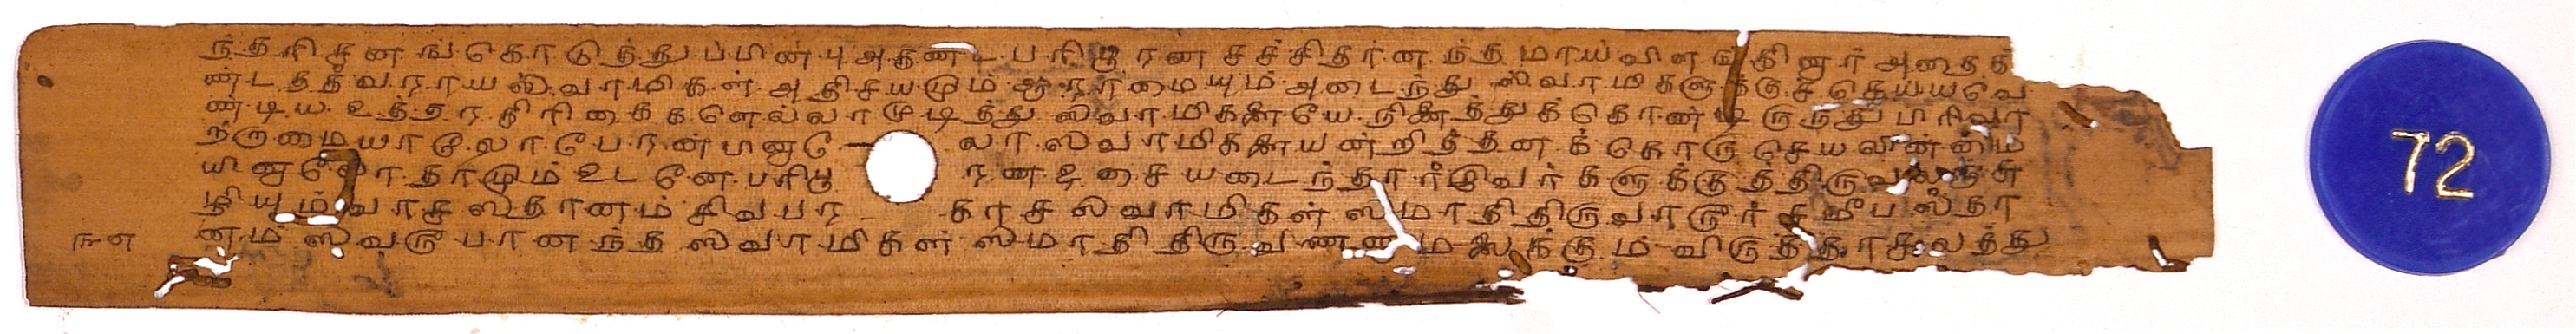 ந்தரிசனங்கொடுத்துப்பின்பு அகண்ட பரிபூரண சச்சிதானந்தமாய் விளங்கினார் அதைக்
ண்ட தத்வராயஸ்வாமிகள் அதிசயமும் ஆராமையும் அடைந்து ஸ்வாமிகளுக்குச் செய்யவே
ண்டிய உத்தரகிரிகைகளெல்லாமுடித்து ஸ்வாமிகளையே நினைத்துக்கொண்டிருந்து
ஸ்வாமிகளையன்றித்தனக்கொரு செயலின்மை
தாமும் உடனே பரிபூ ரண தசையடைந்தார் இவர்களுக்குத்திரு
வாசஸ்தானம் சிவபர காசஸ்வாமிகள் ஸமாதி திருவாரூர் சமீபஸ்தா
௩௭ னம் ஸ்வரூபானந்த ஸ்வாமிகள் ஸமாதி திருவண்ணாமலைக்கும் விருத்தாசலத்து
72